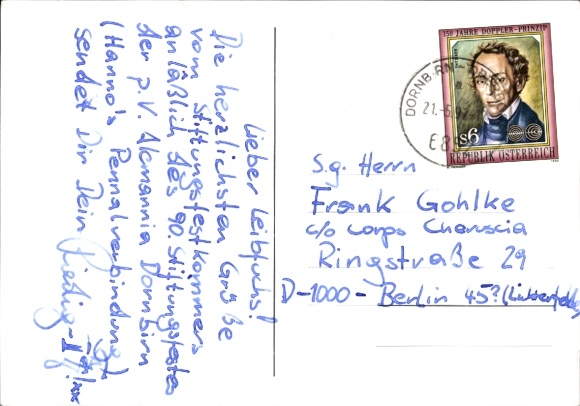 Lieber Leibfuchs!
Die herzlichsten Grüße
vom Stiftungsfestkommers
anläßlich des 90. Stiftungsfestes
der p.V. Alemannia Dornbirn
(Hanno's Pennalverbindung)
sendet Dir Dein
150 JAHRE DOPPLER-PRINZIP
S6
REPUBLIK ÖSTERREICH
DORNBIRN
21.-6.
S.g. Herrn
Frank Gohlke
c/o Corps Cheruscia
Ringstraße 29
D-1000 - Berlin 45? (Lichterfelde)